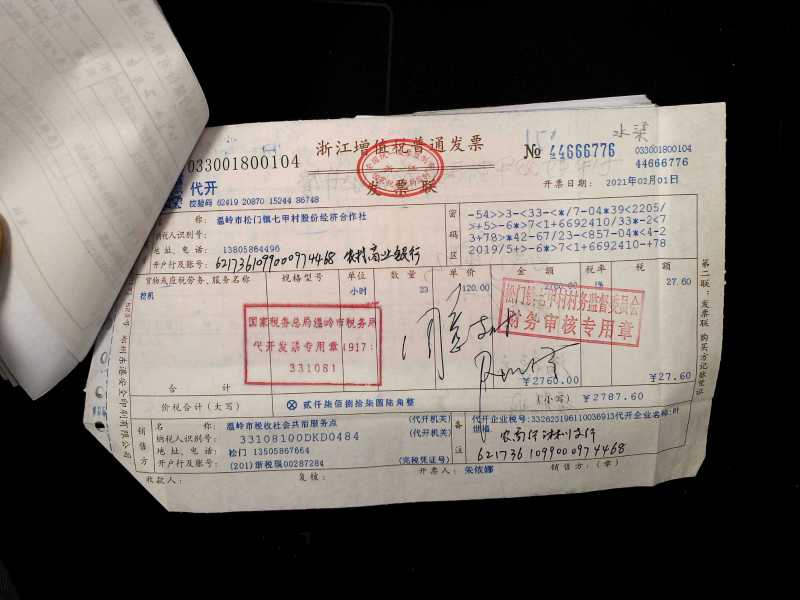 浙江增值税普通发票
033001800104
№ 44666776
033001800104
44666776
代开
发票联
校验码 62419 20870 15244 86748
开票日期： 2021年02月01日
名 称： 温岭市松门镇七甲村股份经济合作社
纳税人识别号：
地址、电话： 13805864496
开户行及账号： 6217361099000974468 农村商业银行
密码区
-54>>3-<33-<*/7-04*39<2205/
>+5>-6*>7<1+6692410/33*-2<7
3+78>*42-67/23-<857-04*<4-2
2019/5+>-6*>7<1+6692410-+78
货物或应税劳务、服务名称 规格型号 单位 数量 单价 金额 税率 税额
挖机 小时 23 120.00 1% 27.60
国家税务总局温岭市税务局
代开发票专用章(917
331081
松门镇七甲村村务监督委员会
财务审核专用章
合计 ￥2760.00 ￥27.60
价税合计（大写） ⊗ 贰仟柒佰捌拾柒圆陆角整 （小写） ￥2787.60
销售方
名 称： 温岭市税收社会共治服务点 （代开机关）
纳税人识别号： 33108100DKD0484 （代开机关）
地址、电话： 松门 13505867664
开户行及账号： (201)浙税现00287284 （完税凭证号）
备注
代开企业税号:332623196110036913代开企业名称:叶
6217361099000974468
收款人： 复核： 开票人： 朱依娜 销售方：（章）
第二联：发票联 购买方记账凭证